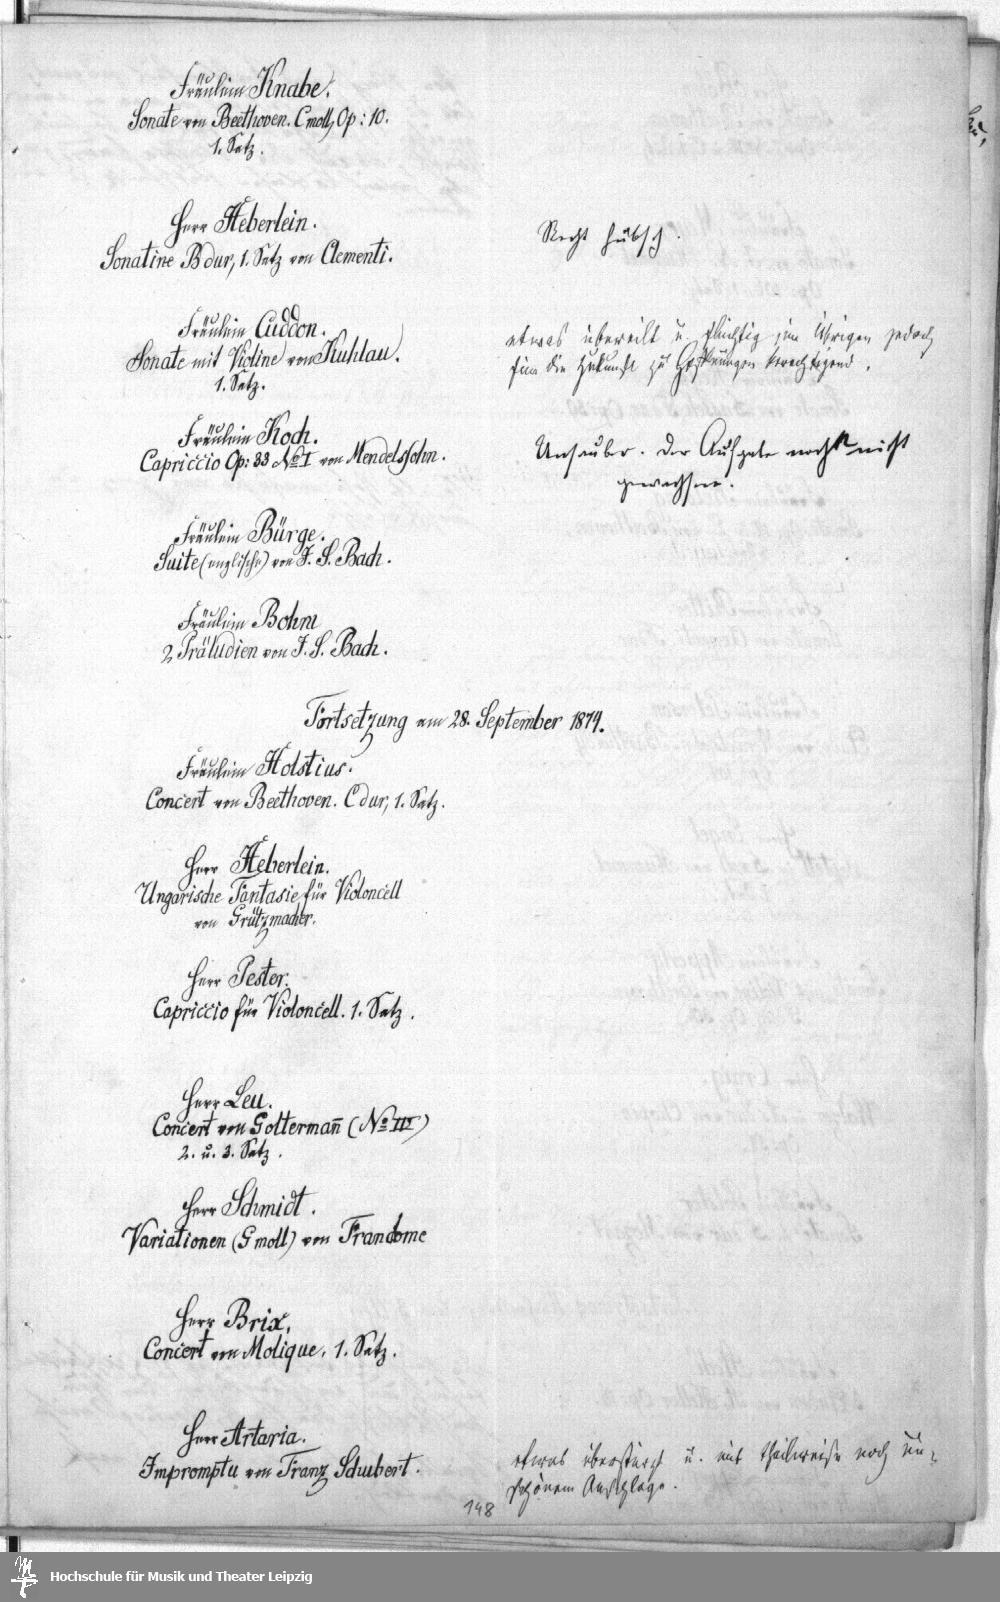 Fräulein Knabe.
Sonate von Beethoven. Cmoll, Op: 10.
1. Satz.
Herr Heberlein.
Sonatine Bdur, 1. Satz von Clementi.
Recht hübsch.
Fräulein Cuddon.
Sonate mit Violine von Kuhlau.
1. Satz.
etwas übereilt u. flüchtig im Übrigen jedoch
für die Zukunft zu Hoffnungen berechtigend.
Fräulein Koch.
Capriccio Op: 33 No I von Mendelssohn.
Unsauber. Der Aufgabe noch nicht
gewachsen.
Fräulein Bürge.
Suite (englische) von J. S. Bach.
Fräulein Bohm
2 Präludien von J. S. Bach.
Fortsetzung am 28. September 1874.
Fräulein Holstius.
Concert von Beethoven. Cdur, 1. Satz.
Herr Heberlein.
Ungarische Fantasie für Violoncell
von Grützmacher.
Herr Pester.
Capriccio für Violoncell. 1. Satz.
Herr Leu.
Concert von Goltermañ (No III)
2. u. 3. Satz.
Herr Schmidt.
Variationen (G moll) von
Herr Brix.
Concert von Molique. 1. Satz.
Herr Artaria.
Impromptu von Franz Schubert.
etwas überstürzt u. mit theilweise noch un-
schönem Anschlage.
148
Hochschule für Musik und Theater Leipzig